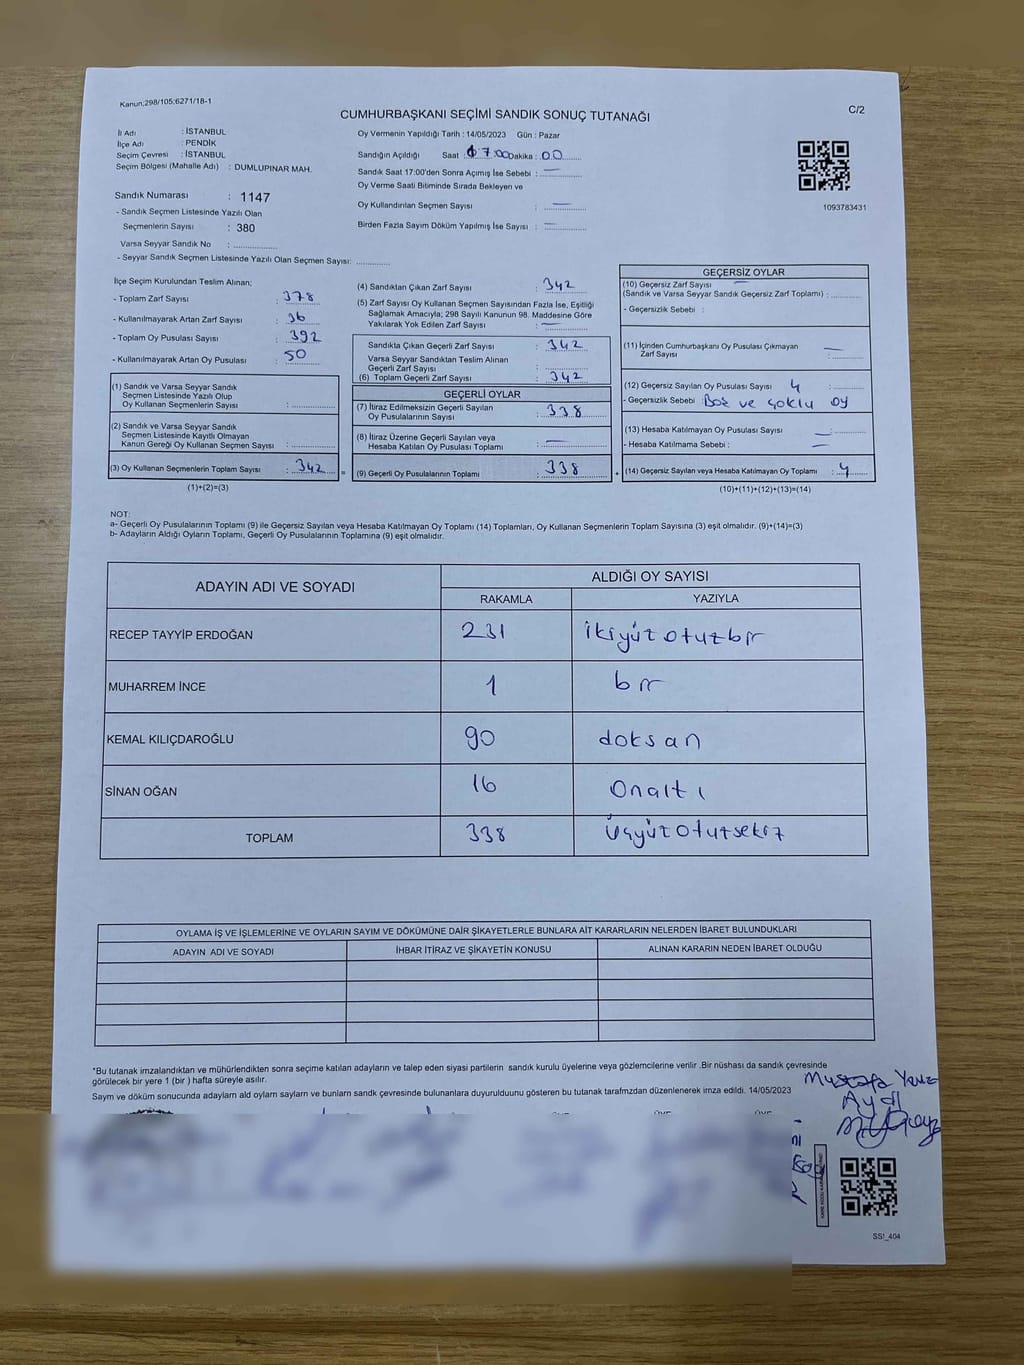 Kanun;298/105;6271/18-1
CUMHURBAŞKANI SEÇİMİ SANDIK SONUÇ TUTANAĞI
C/2
İl Adı : İSTANBUL
İlçe Adı : PENDİK
Seçim Çevresi : İSTANBUL
Seçim Bölgesi (Mahalle Adı) : DUMLUPINAR MAH.
Sandık Numarası : 1147
- Sandık Seçmen Listesinde Yazılı Olan
Seçmenlerin Sayısı : 380
Varsa Seyyar Sandık No : ..............
- Seyyar Sandık Seçmen Listesinde Yazılı Olan Seçmen Sayısı: ............
Oy Vermenin Yapıldığı Tarih : 14/05/2023 Gün : Pazar
Sandığın Açıldığı Saat : 17:00 Dakika : 00
Sandık Saat 17:00'den Sonra Açımış İse Sebebi : —
Oy Verme Saati Bitiminde Sırada Bekleyen ve
Oy Kullandırılan Seçmen Sayısı : —
Birden Fazla Sayım Döküm Yapılmış İse Sayısı : —
1093783431
İlçe Seçim Kurulundan Teslim Alınan;
- Toplam Zarf Sayısı : 378
- Kullanılmayarak Artan Zarf Sayısı : 36
- Toplam Oy Pusulası Sayısı : 392
- Kullanılmayarak Artan Oy Pusulası : 50
(1) Sandık ve Varsa Seyyar Sandık
Seçmen Listesinde Yazılı Olup
Oy Kullanan Seçmenlerin Sayısı :
(2) Sandık ve Varsa Seyyar Sandık
Seçmen Listesinde Kayıtlı Olmayan
Kanun Gereği Oy Kullanan Seçmen Sayısı :
(3) Oy Kullanan Seçmenlerin Toplam Sayısı : 342 =
(1)+(2)=(3)
(4) Sandıktan Çıkan Zarf Sayısı : 342
(5) Zarf Sayısı Oy Kullanan Seçmen Sayısından Fazla İse, Eşitliği
Sağlamak Amacıyla; 298 Sayılı Kanunun 98. Maddesine Göre
Yakılarak Yok Edilen Zarf Sayısı : —
Sandıkta Çıkan Geçerli Zarf Sayısı : 342
Varsa Seyyar Sandıktan Teslim Alınan
Geçerli Zarf Sayısı :
(6) Toplam Geçerli Zarf Sayısı : 342
GEÇERLİ OYLAR
(7) İtiraz Edilmeksizin Geçerli Sayılan
Oy Pusulalarının Sayısı : 338
(8) İtiraz Üzerine Geçerli Sayılan veya
Hesaba Katılan Oy Pusulası Toplamı : —
(9) Geçerli Oy Pusulalarının Toplamı : 338 +
GEÇERSİZ OYLAR
(10) Geçersiz Zarf Sayısı —
(Sandık ve Varsa Seyyar Sandık Geçersiz Zarf Toplamı) :
- Geçersizlik Sebebi :
(11) İçinden Cumhurbaşkanı Oy Pusulası Çıkmayan —
Zarf Sayısı :
(12) Geçersiz Sayılan Oy Pusulası Sayısı 4 :
- Geçersizlik Sebebi : Boş ve çoklu oy
(13) Hesaba Katılmayan Oy Pusulası Sayısı : —
- Hesaba Katılmama Sebebi : —
(14) Geçersiz Sayılan veya Hesaba Katılmayan Oy Toplamı : 4
(10)+(11)+(12)+(13)=(14)
NOT:
a- Geçerli Oy Pusulalarının Toplamı (9) ile Geçersiz Sayılan veya Hesaba Katılmayan Oy Toplamı (14) Toplamları, Oy Kullanan Seçmenlerin Toplam Sayısına (3) eşit olmalıdır. (9)+(14)=(3)
b- Adayların Aldığı Oyların Toplamı, Geçerli Oy Pusulalarının Toplamına (9) eşit olmalıdır.
ADAYIN ADI VE SOYADI
ALDIĞI OY SAYISI
RAKAMLA YAZIYLA
RECEP TAYYİP ERDOĞAN 231 ikiyüzotuzbir
MUHARREM İNCE 1 bir
KEMAL KILIÇDAROĞLU 90 doksan
SİNAN OĞAN 16 Onaltı
TOPLAM 338 Üçyüzotuzsekiz
OYLAMA İŞ VE İŞLEMLERİNE VE OYLARIN SAYIM VE DÖKÜMÜNE DAİR ŞİKAYETLERLE BUNLARA AİT KARARLARIN NELERDEN İBARET BULUNDUKLARI
ADAYIN ADI VE SOYADI İHBAR İTİRAZ VE ŞİKAYETİN KONUSU ALINAN KARARIN NEDEN İBARET OLDUĞU
*Bu tutanak imzalandıktan ve mühürlendikten sonra seçime katılan adayların ve talep eden siyasi partilerin sandık kurulu üyelerine veya gözlemcilerine verilir .Bir nüshası da sandık çevresinde
görülecek bir yere 1 (bir ) hafta süreyle asılır.
Sayım ve döküm sonucunda adayların ald oyların sayların ve bunların sandk çevresinde bulunanlara duyurulduunu gösteren bu tutanak tarafmzdan düzenlenerek imza edildi. 14/05/2023
Mustafa
SS!_404